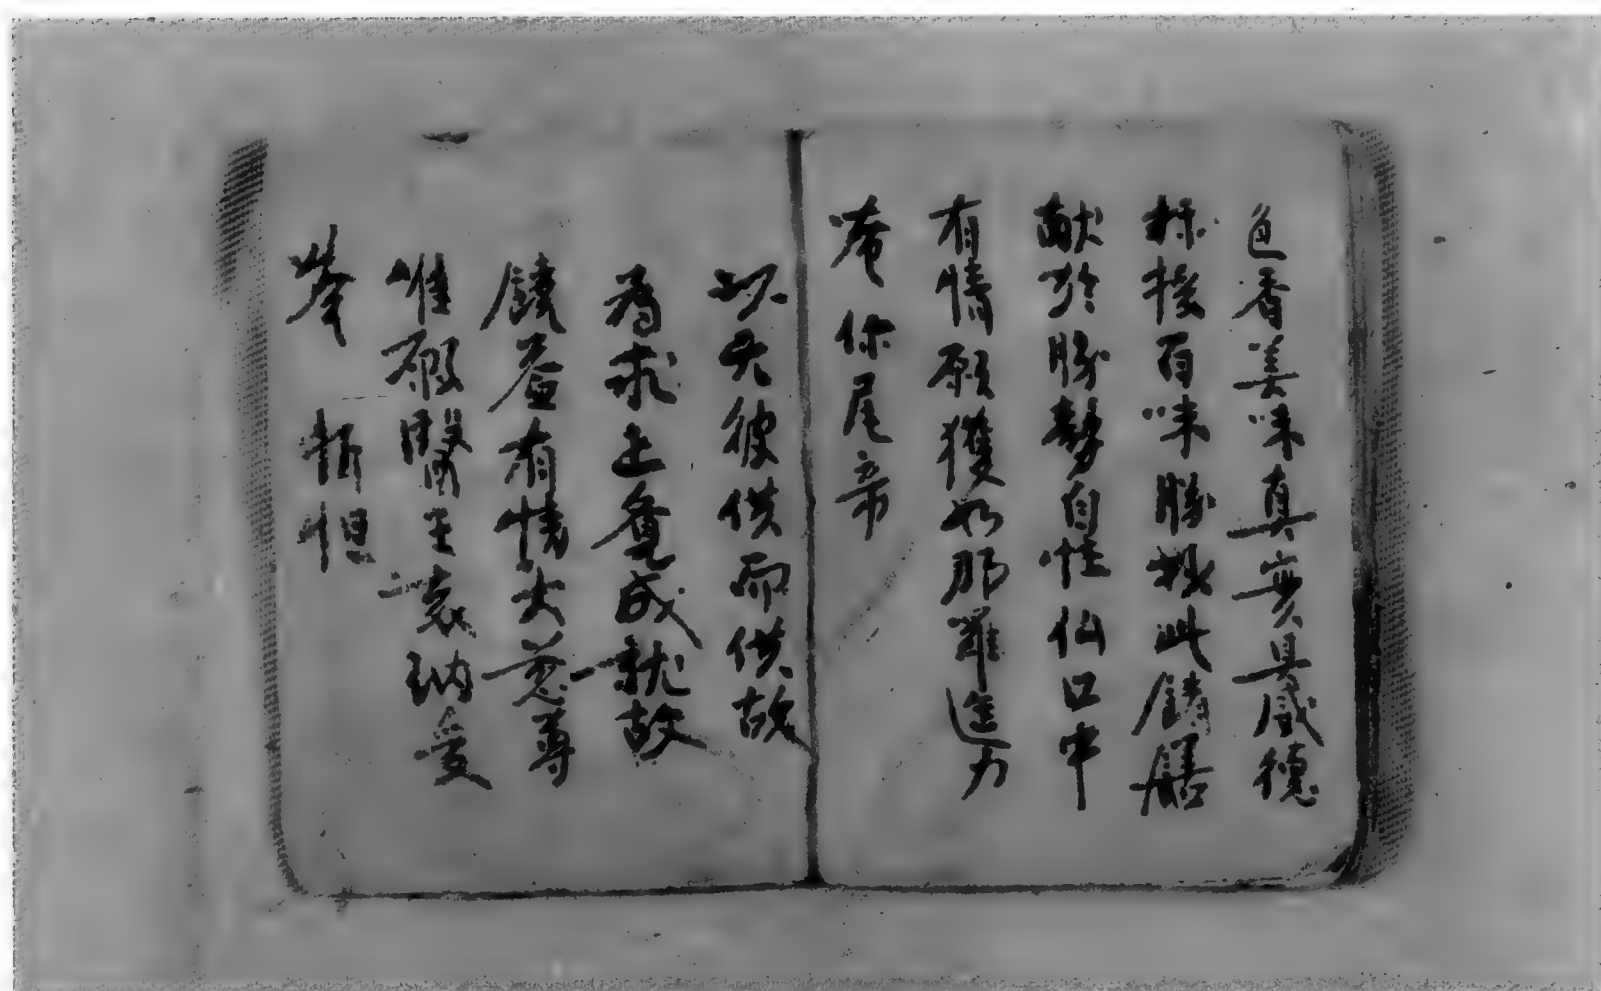 色香美味真實具威德
種種百味勝妙此饍
献於勝勢自性仙口中
有情願獲如那羅進力
唵你尾帝
以无彼供而供故
為求上覺成就故
饒益有情大慈尊
唯願醫王哀納受
拳